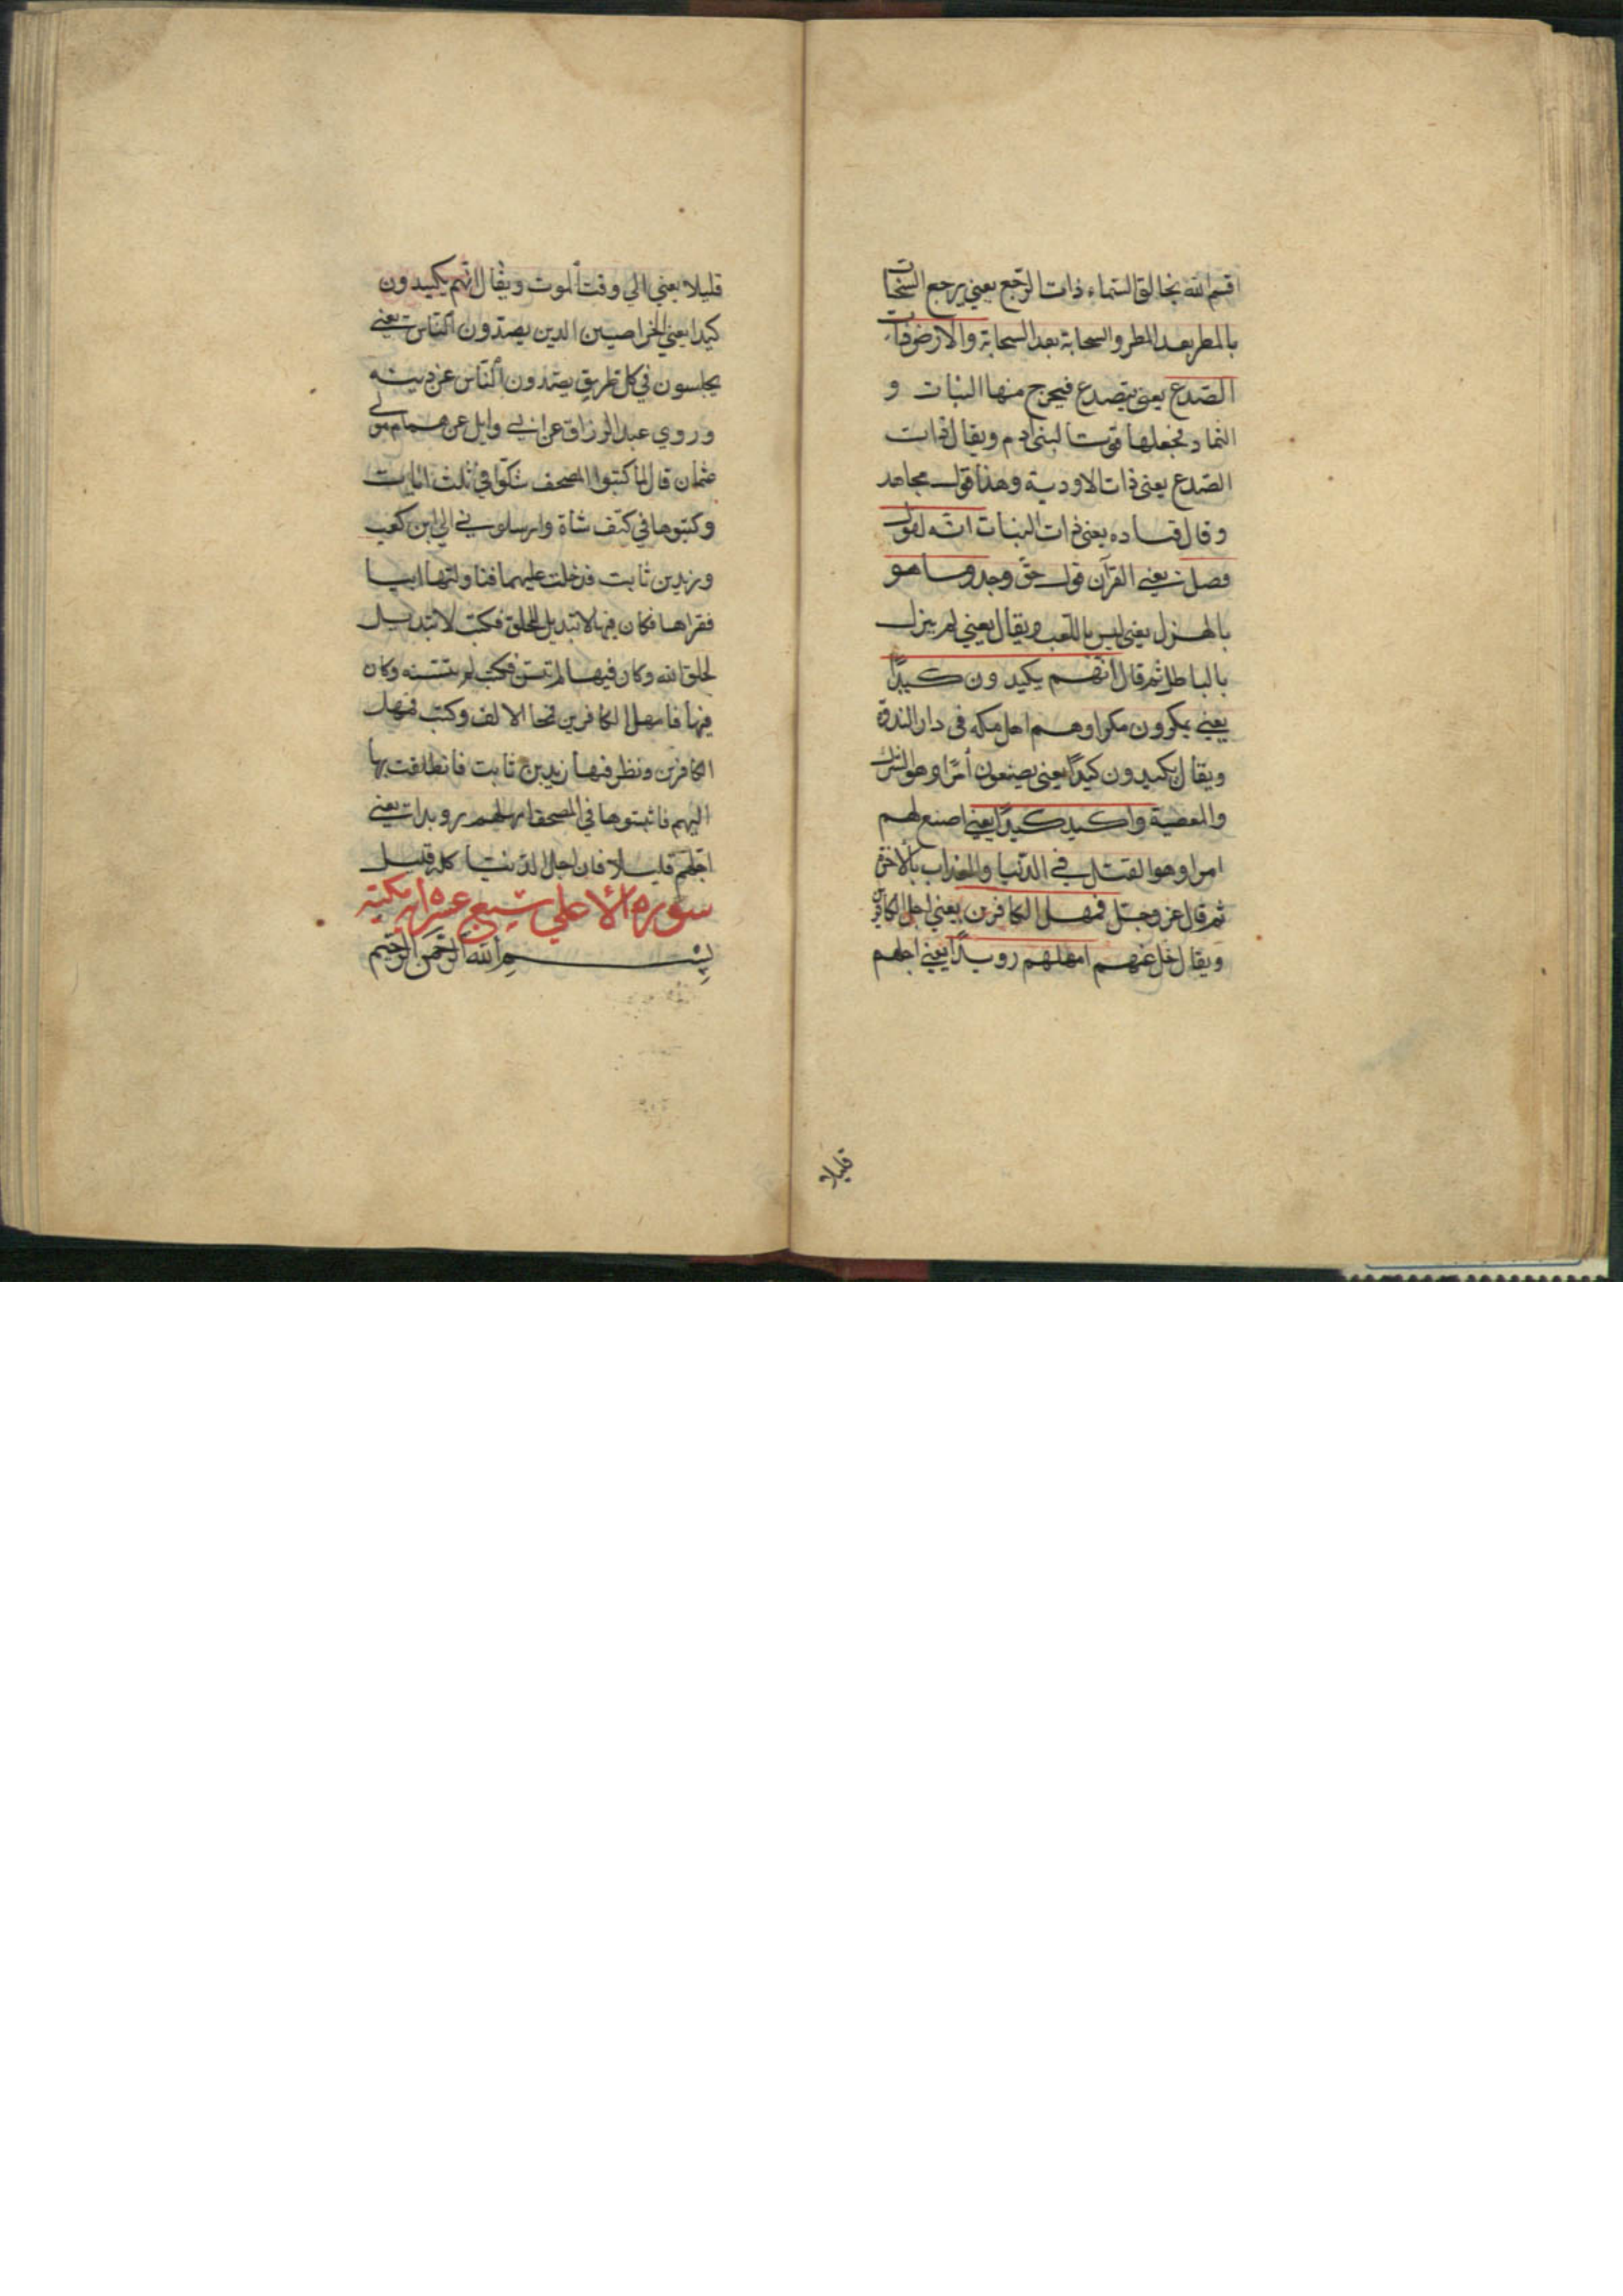 اقسم الله بخالق السماء ذات الرجع يعني يرجع السحاب
بالمطر بعد المطر والسحابة بعد السحابة والارض ذات
الصدع يعني يتصدع فيخرج منها النبات و
الثمار فجعلها قوتا لبني ادم ويقال ذات
الصدع يعني ذات الاودية وهذا قول مجاهد
وقال قتاده يعني ذات النبات انه لقول
فصل يعني القرآن قول حق وجد وما هو
بالهزل يعني ليس باللعب ويقال يعني لم ينزل
بالباطل ثم قال انهم يكيدون كيدًا
يعني يمكرون مكرا وهم اهل مكه في دار الندوة
ويقال يكيدون كيدًا يعني يصنعون أمرًا وهو الشرك
والمعصية واكيد كيدًا يعني اصنع لهم
امرا وهو القتل في الدنيا والعذاب بالآخرة
ثم قال عز وجل فمهل الكافرين يعني اجل الكافرين
ويقال خل عنهم امهلهم رويدًا يعني اجلهم
قليلا
قليلا يعني الى وقت الموت ويقال انهم يكيدون
كيدا يعني الخراصين الذين يصدون الناس يعني
يجلسون في كل طريق يصدون الناس عن دينه
وروي عبد الرزاق عن ابي وايل عن همام مولى
عثمان قال لما كتبوا المصحف شكوا في ثلث ايات
وكتبوها في كتف شاة وارسلوني الى ابن كعب
وزيد بن ثابت فدخلت عليهما فناولتها ابيا
فقراها فكان فيها لا تبديل للخلق فكتب لا تبديل
لخلق الله وكان فيها لم يتسن فكتب لم يتسنه وكان
فيها فامهل الكافرين فمحا الالف وكتب فمهل
الكافرين ونظر فيها زيد بن ثابت فانطلقت بها
اليهم فاثبتوها في المصحف امهلهم رويدا يعني
اجلهم قليلا فان اجل الدنيا كله قليل
سورة الأعلي تسع عشره اية مكية
بسم الله الرحمن الرحيم